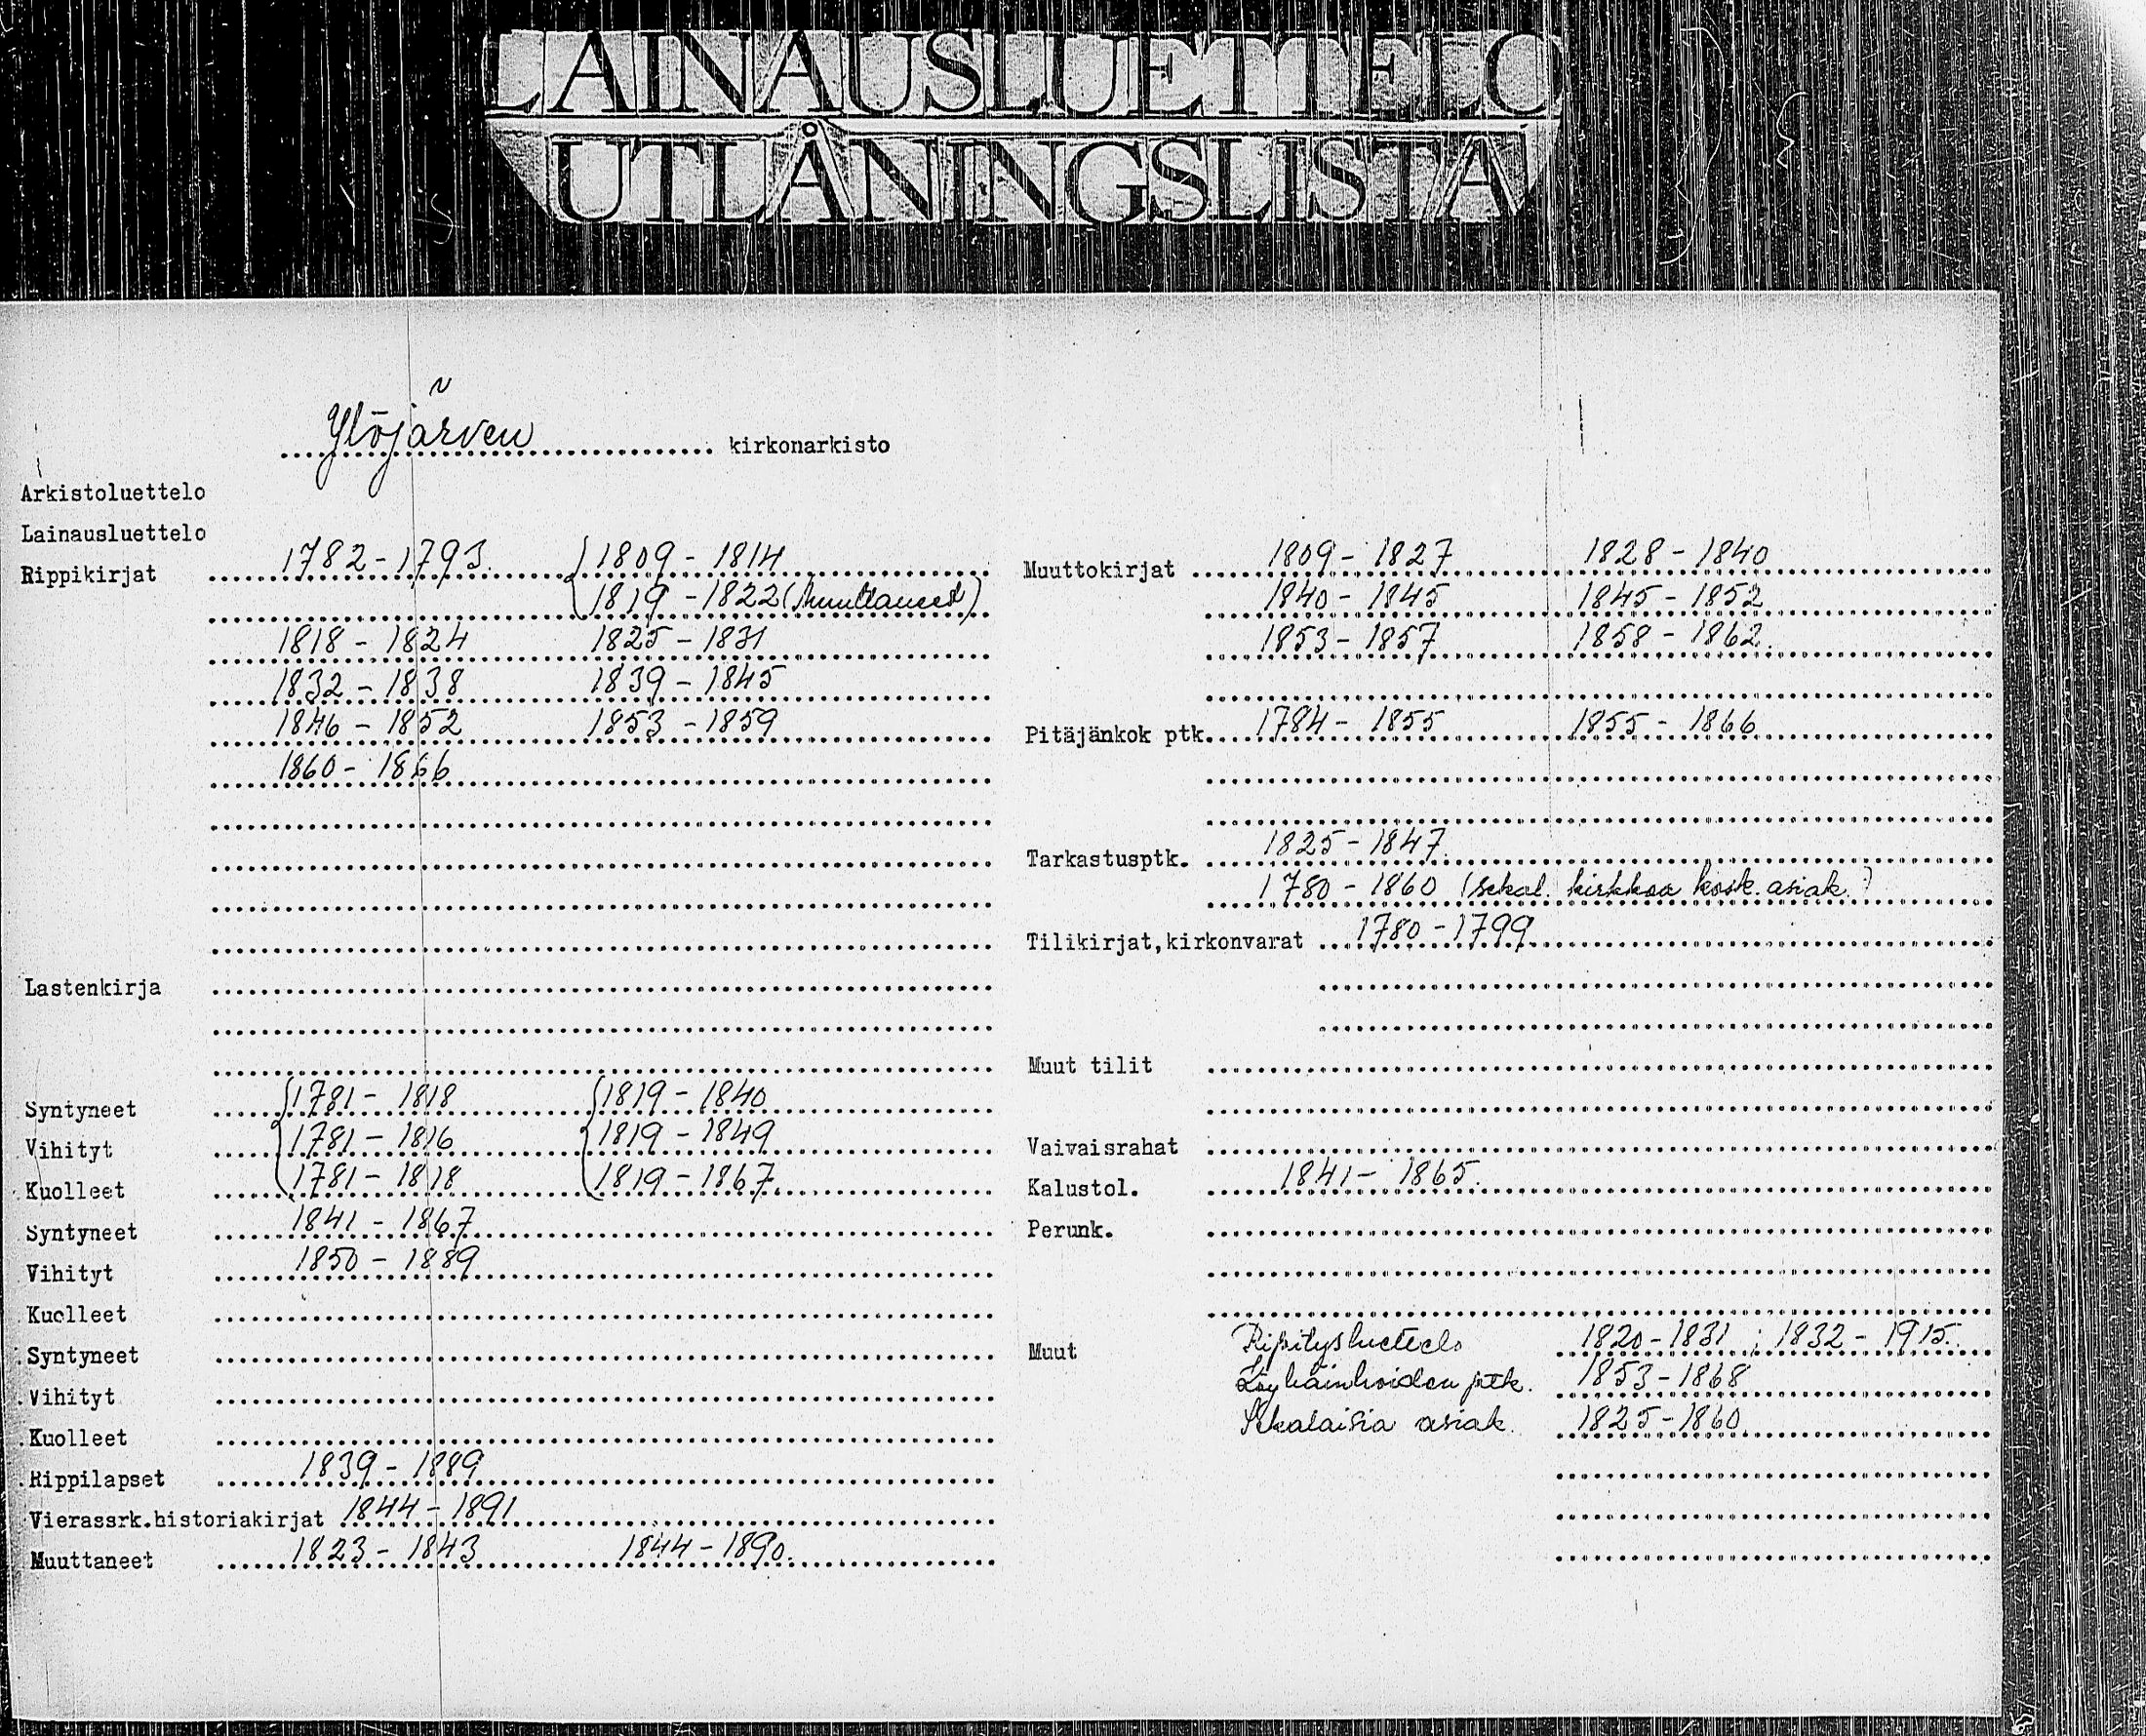 LAINAUSLUETTELO
UTLÅNINGSLISTA
Ylöjärven kirkonarkisto
Arkistoluettelo
Lainausluettelo
Rippikirjat 1782-1793. 1809 - 1814
1819 - 1822 (Muuttaneet)
1818 - 1824 1825 - 1831
1832 - 1838 1839 - 1845
1846 - 1852 1853 - 1859
1860 - 1866
Lastenkirja
Syntyneet 1781 - 1818 1819 - 1840
Vihityt 1781 - 1816 1819 - 1849
Kuolleet 1781 - 1818 1819 - 1867.
Syntyneet 1841 - 1867
Vihityt 1850 - 1889
Kuolleet
Syntyneet
Vihityt
Kuolleet
Rippilapset 1839 - 1889
Vierassrk.historiakirjat 1844 - 1891
Muuttaneet 1823 - 1843 1844 - 1890.
Muuttokirjat 1809 - 1827 1828 - 1840
1840 - 1845 1845 - 1852
1853 - 1857 1858 - 1862.
Pitäjänkok ptk. 1784 - 1855 1855 - 1866
Tarkastusptk. 1825 - 1847.
1780 - 1860 (sekal. kirkkoa kosk. asiak.)
Tilikirjat,kirkonvarat 1780 - 1799
Muut tilit
Vaivaisrahat
Kalustol. 1841 - 1865.
Perunk.
Muut Ripitysluettelo 1820 - 1831 ; 1832 - 1915.
Köyhäinhoidon ptk. 1853 - 1868
Sekalaisia asiak. 1825 - 1860